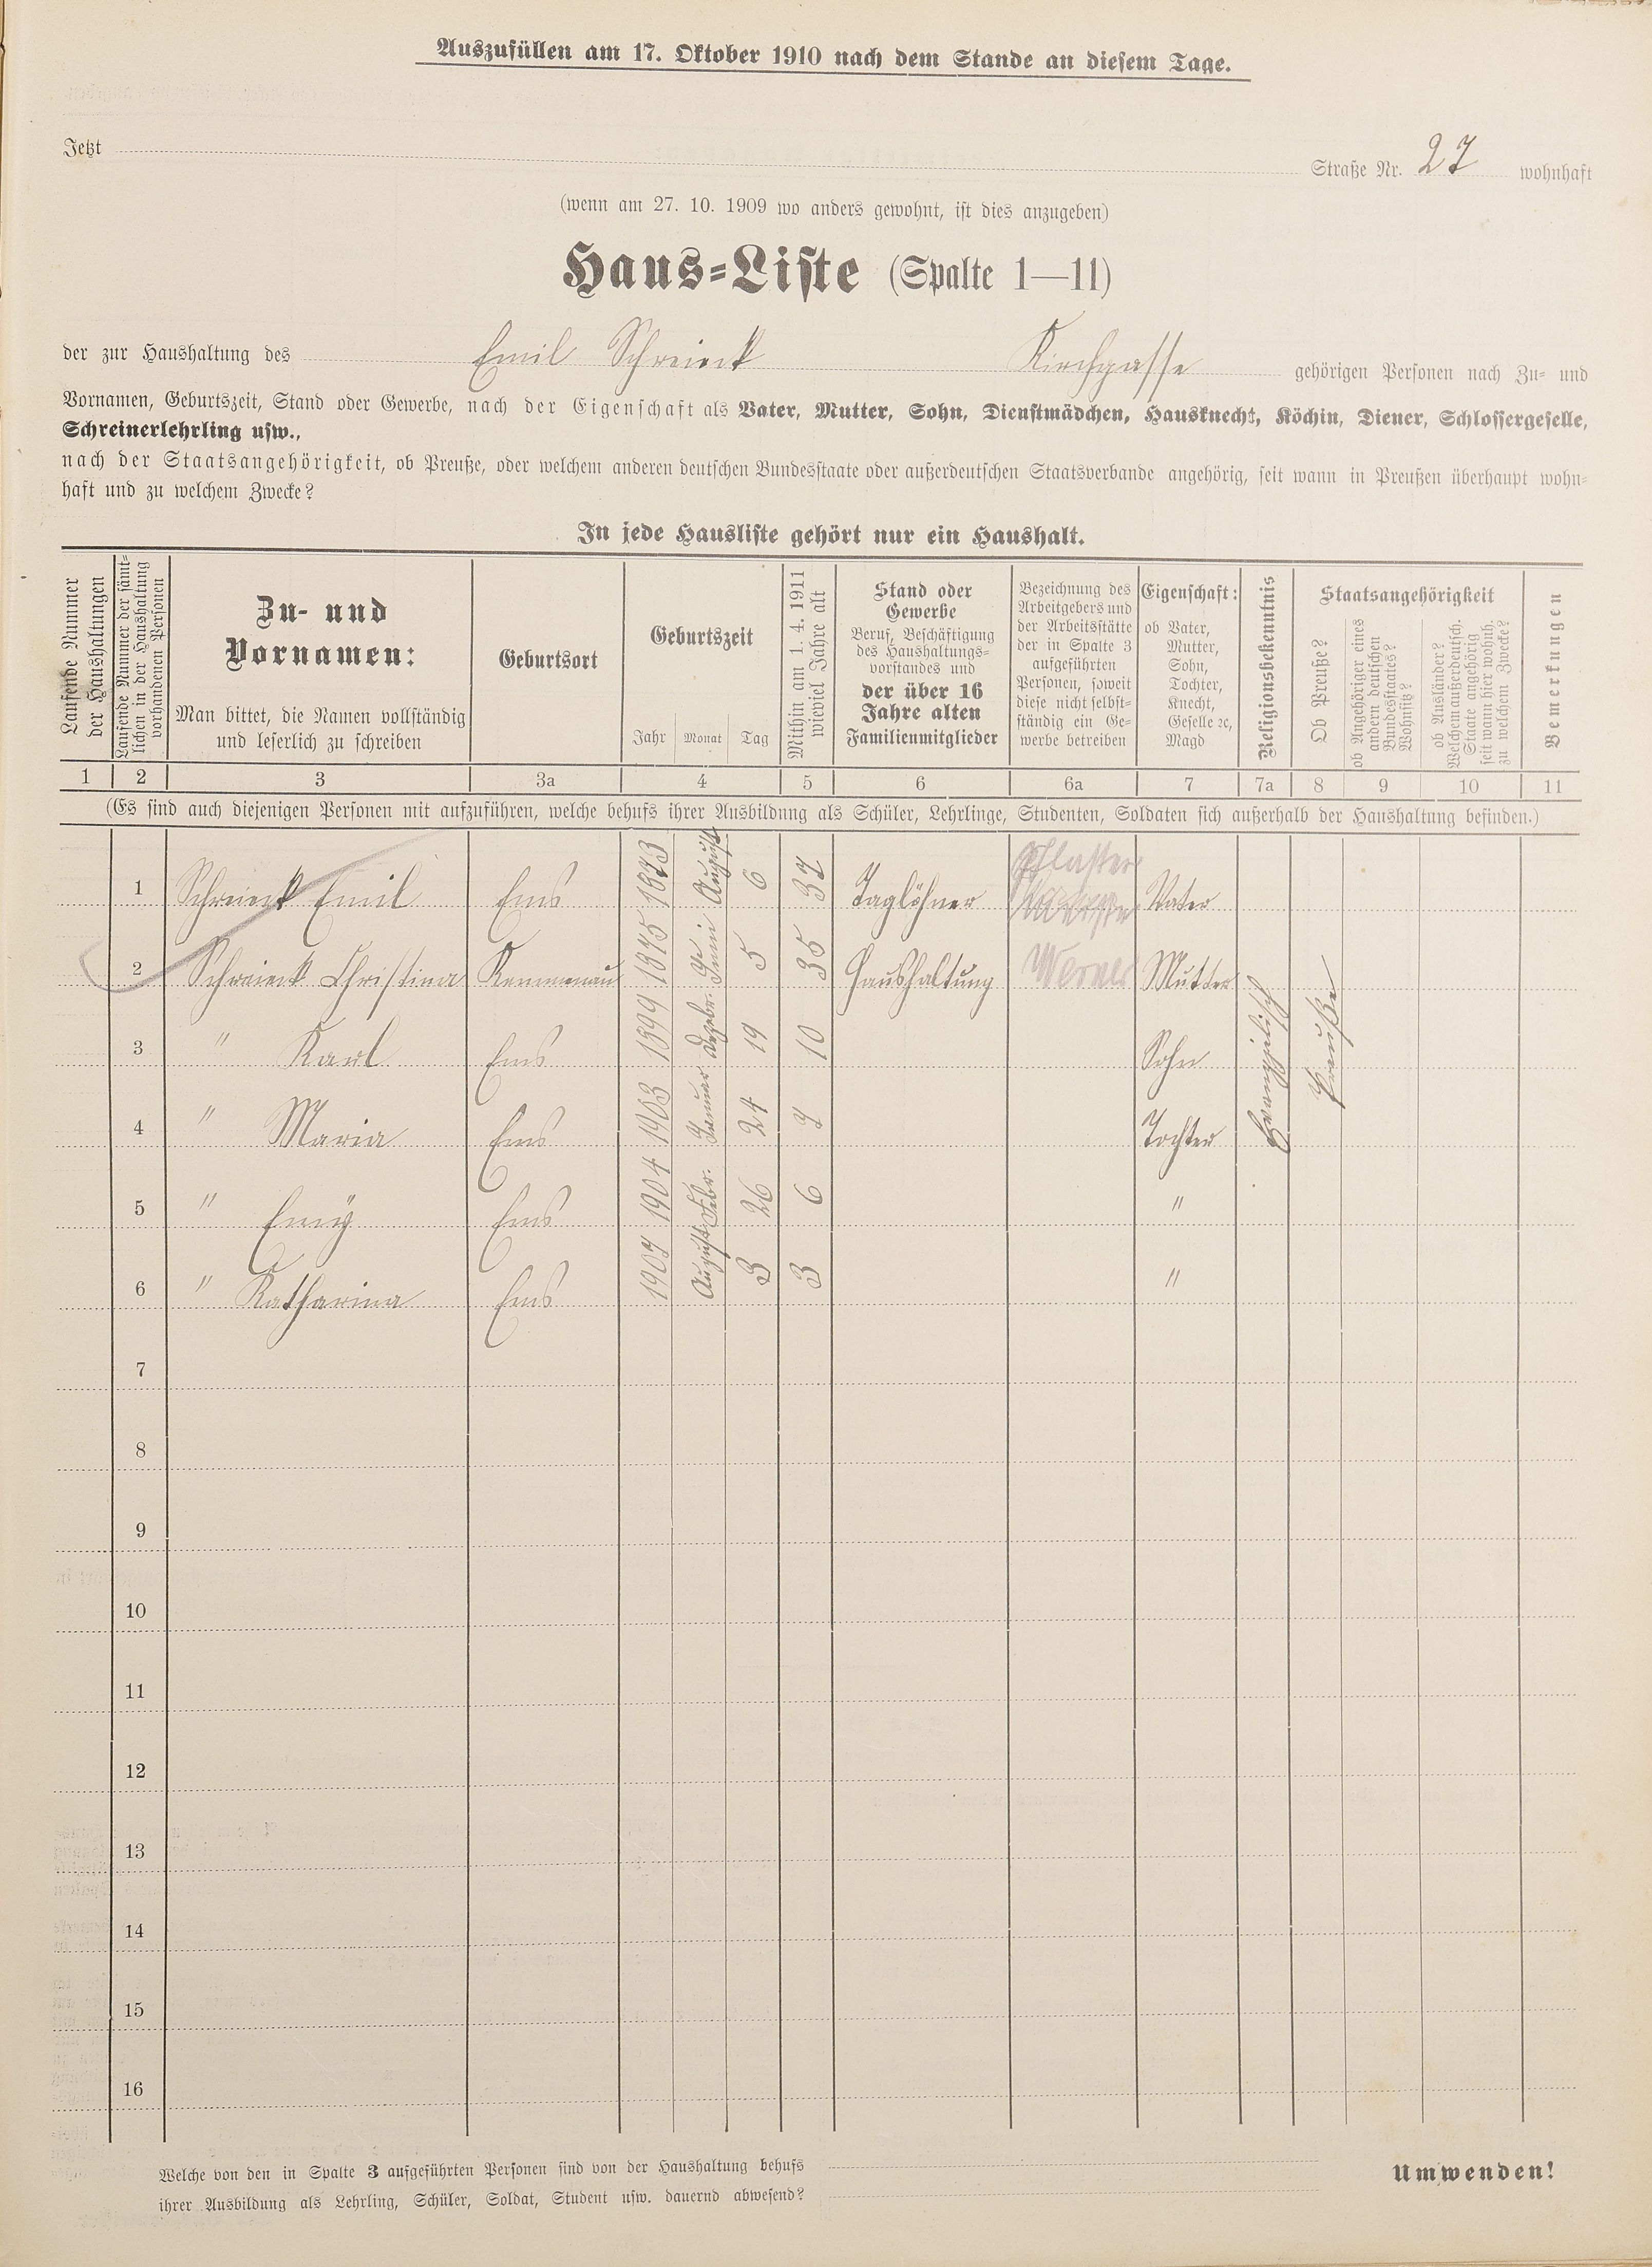 Auszufüllen am 17. Oktober 1910 nach dem Stande an diesem Tage.
Jetzt Straße Nr. 27 wohnhaft
(wenn am 27. 10. 1909 wo anders gewohnt, ist dies anzugeben)
Haus=Liste (Spalte 1—11)
der zur Haushaltung des Emil Schreieck Kirchgasse gehörigen Personen nach Zu= und
Vornamen, Geburtszeit, Stand oder Gewerbe, nach der Eigenschaft als Vater, Mutter, Sohn, Dienstmädchen, Hausknecht, Köchin, Diener, Schlossergeselle,
Schreinerlehrling usw.,
nach der Staatsangehörigkeit, ob Preuße, oder welchem anderen deutschen Bundesstaate oder außerdeutschen Staatsverbande angehörig, seit wann in Preußen überhaupt wohn=
haft und zu welchem Zwecke?
In jede Hausliste gehört nur ein Haushalt.
Laufende Nummer
der Haushaltungen
Laufende Nummer der sämt=
lichen in der Haushaltung
vorhandenen Personen
Zu- und
Vornamen:
Man bittet, die Namen vollständig
und leserlich zu schreiben
Geburtsort
Geburtszeit
Jahr Monat Tag
Mithin am 1. 4. 1911
wieviel Jahre alt
Stand oder
Gewerbe
Beruf, Beschäftigung
des Haushaltungs=
vorstandes und
der über 16
Jahre alten
Familienmitglieder
Bezeichnung des
Arbeitgebers und
der Arbeitsstätte
der in Spalte 3
aufgeführten
Personen, soweit
diese nicht selbst=
ständig ein Ge=
werbe betreiben
Eigenschaft:
ob Vater,
Mutter,
Sohn,
Tochter,
Knecht,
Geselle ꝛc,
Magd
Religionsbekenntnis
Staatsangehörigkeit
Ob Preuße?
ob Angehöriger eines
andern deutschen
Bundesstaates?
Wohnsitz?
ob Ausländer?
Welchem außerdeutsch.
Staate angehörig
seit wann hier wohnh.
zu welchem Zwecke?
Bemerkungen
1 2 3 3a 4 5 6 6a 7 7a 8 9 10 11
(Es sind auch diejenigen Personen mit aufzuführen, welche behufs ihrer Ausbildung als Schüler, Lehrlinge, Studenten, Soldaten sich außerhalb der Haushaltung befinden.)
1 Schreieck Emil Ems 1873 August 6 37 Taglöhner Pflaster Vater
2 Schreieck Christina Kemmenau 1875 Juni 5 35 Haushaltung Werner Mutter Evangelisch Preuße
3 " Karl Ems 1899 Dezbr. 19 10 Sohn
4 " Maria Ems 1903 Januar 24 7 Tochter
5 " Emy Ems 1904 Febr. 26 6 "
6 " Katharina Ems 1907 August 3 3 "
7
8
9
10
11
12
13
14
15
16
Welche von den in Spalte 3 aufgeführten Personen sind von der Haushaltung behufs
ihrer Ausbildung als Lehrling, Schüler, Soldat, Student usw. dauernd abwesend?
Umwenden!